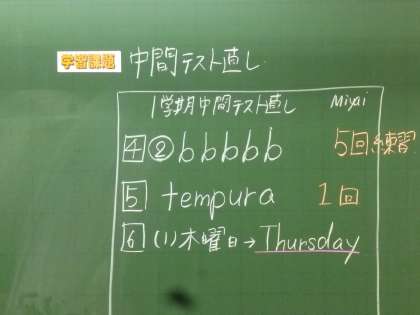 学習課題 中間テスト直し
1学期中間テスト直し Miyai
4 ② bbbbb 5回練習
5 tempura 1回
6 (1) 木曜日→Thursday